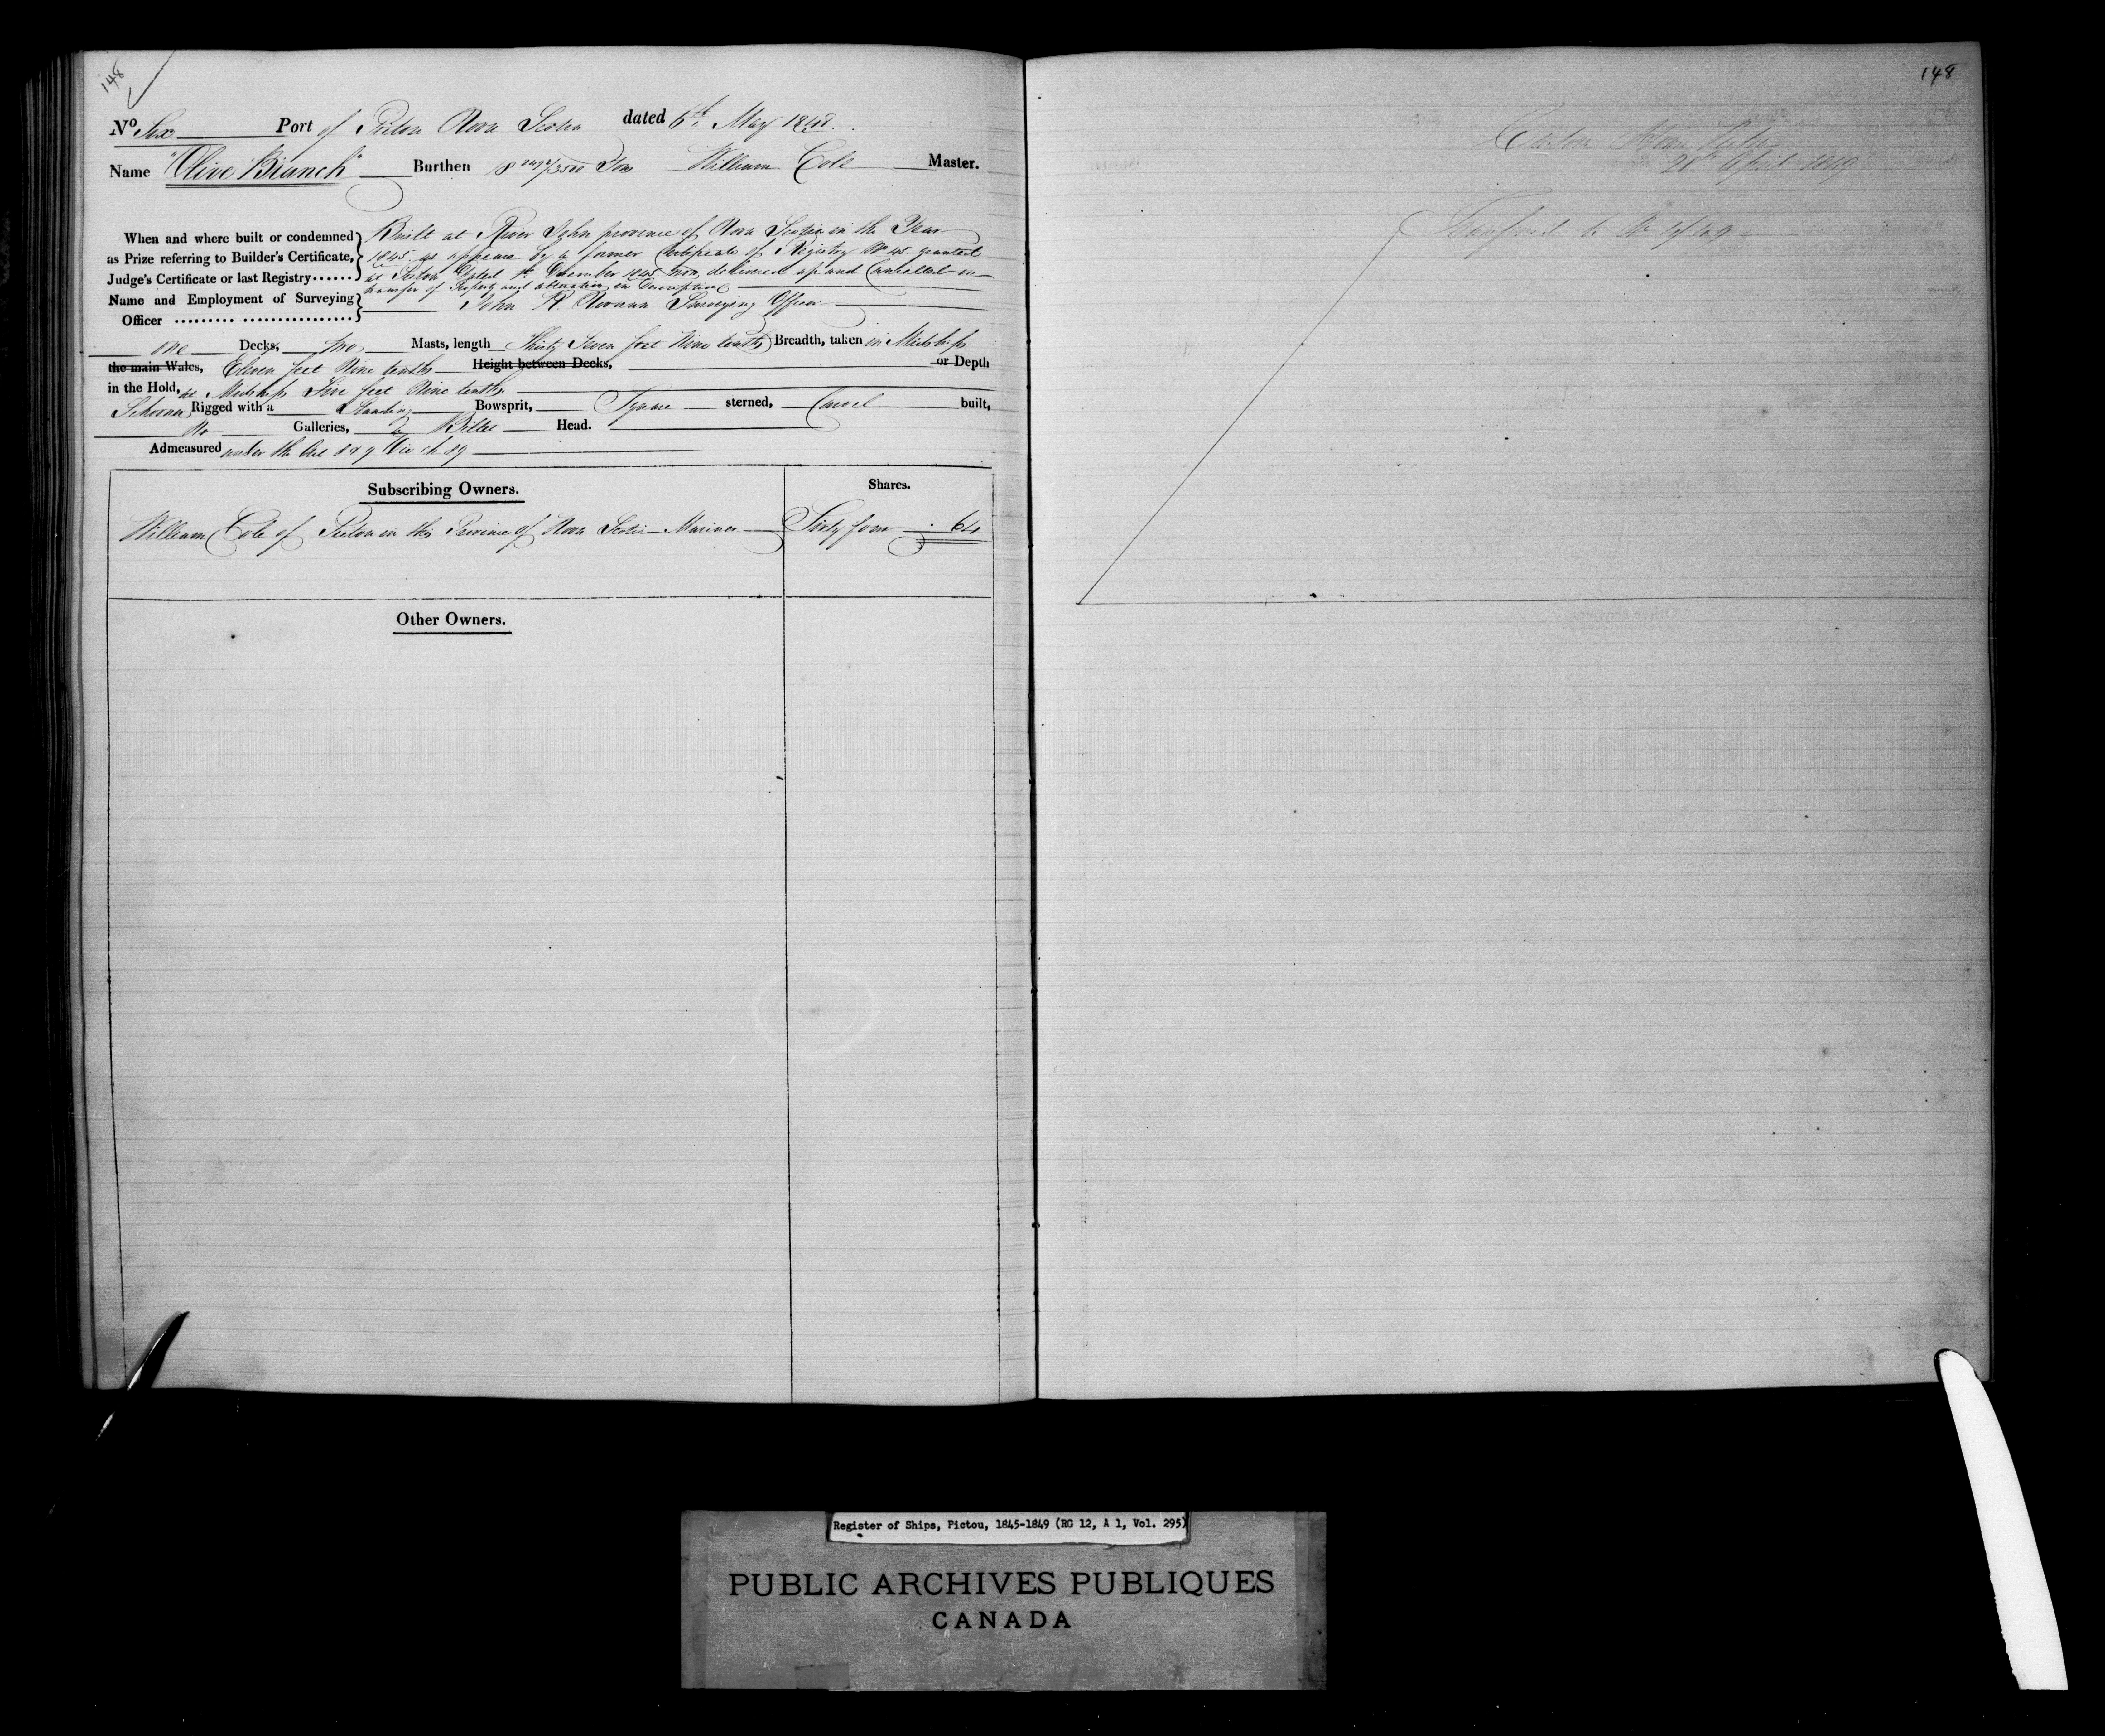 148
No Six Port of Pictou Nova Scotia dated 6th May 1848.
Name "Olive Branch" Burthen 8 2492/3500 Tons William Cole Master.
When and where built or condemned as Prize referring to Builder's Certificate, Judge's Certificate or last Registry......
Built at River John province of Nova Scotia in the Year
1845. as appears by a former Certificate of Registry No 45 granted
at Pictou Dated 1st December 1845 now delivered up and Cancelled on
transfer of Property and alteration in Description
Name and Employment of Surveying Officer ......... ................
John R. Noonan Surveying Officer
one Decks, two Masts, length Thirty Seven feet Nine tenths Breadth, taken in Midships
the main Wales, Eleven feet Nine tenths Height between Decks, or Depth
in the Hold, at Midships Five feet Nine tenths
Schooner Rigged with a Standing Bowsprit, Square sterned, Carvel built,
No Galleries, a Billet Head.
Admeasured under the Act 8 & 9 Vic ch 89
Subscribing Owners.
Shares.
William Cole of Pictou in the Province of Nova Scotia Mariner Sixty four 64
Other Owners.
148
28th April 1849
Transferred to No
Register of Ships, Pictou, 1845-1849 (RG 12, A 1, Vol. 295)
PUBLIC ARCHIVES PUBLIQUES
CANADA